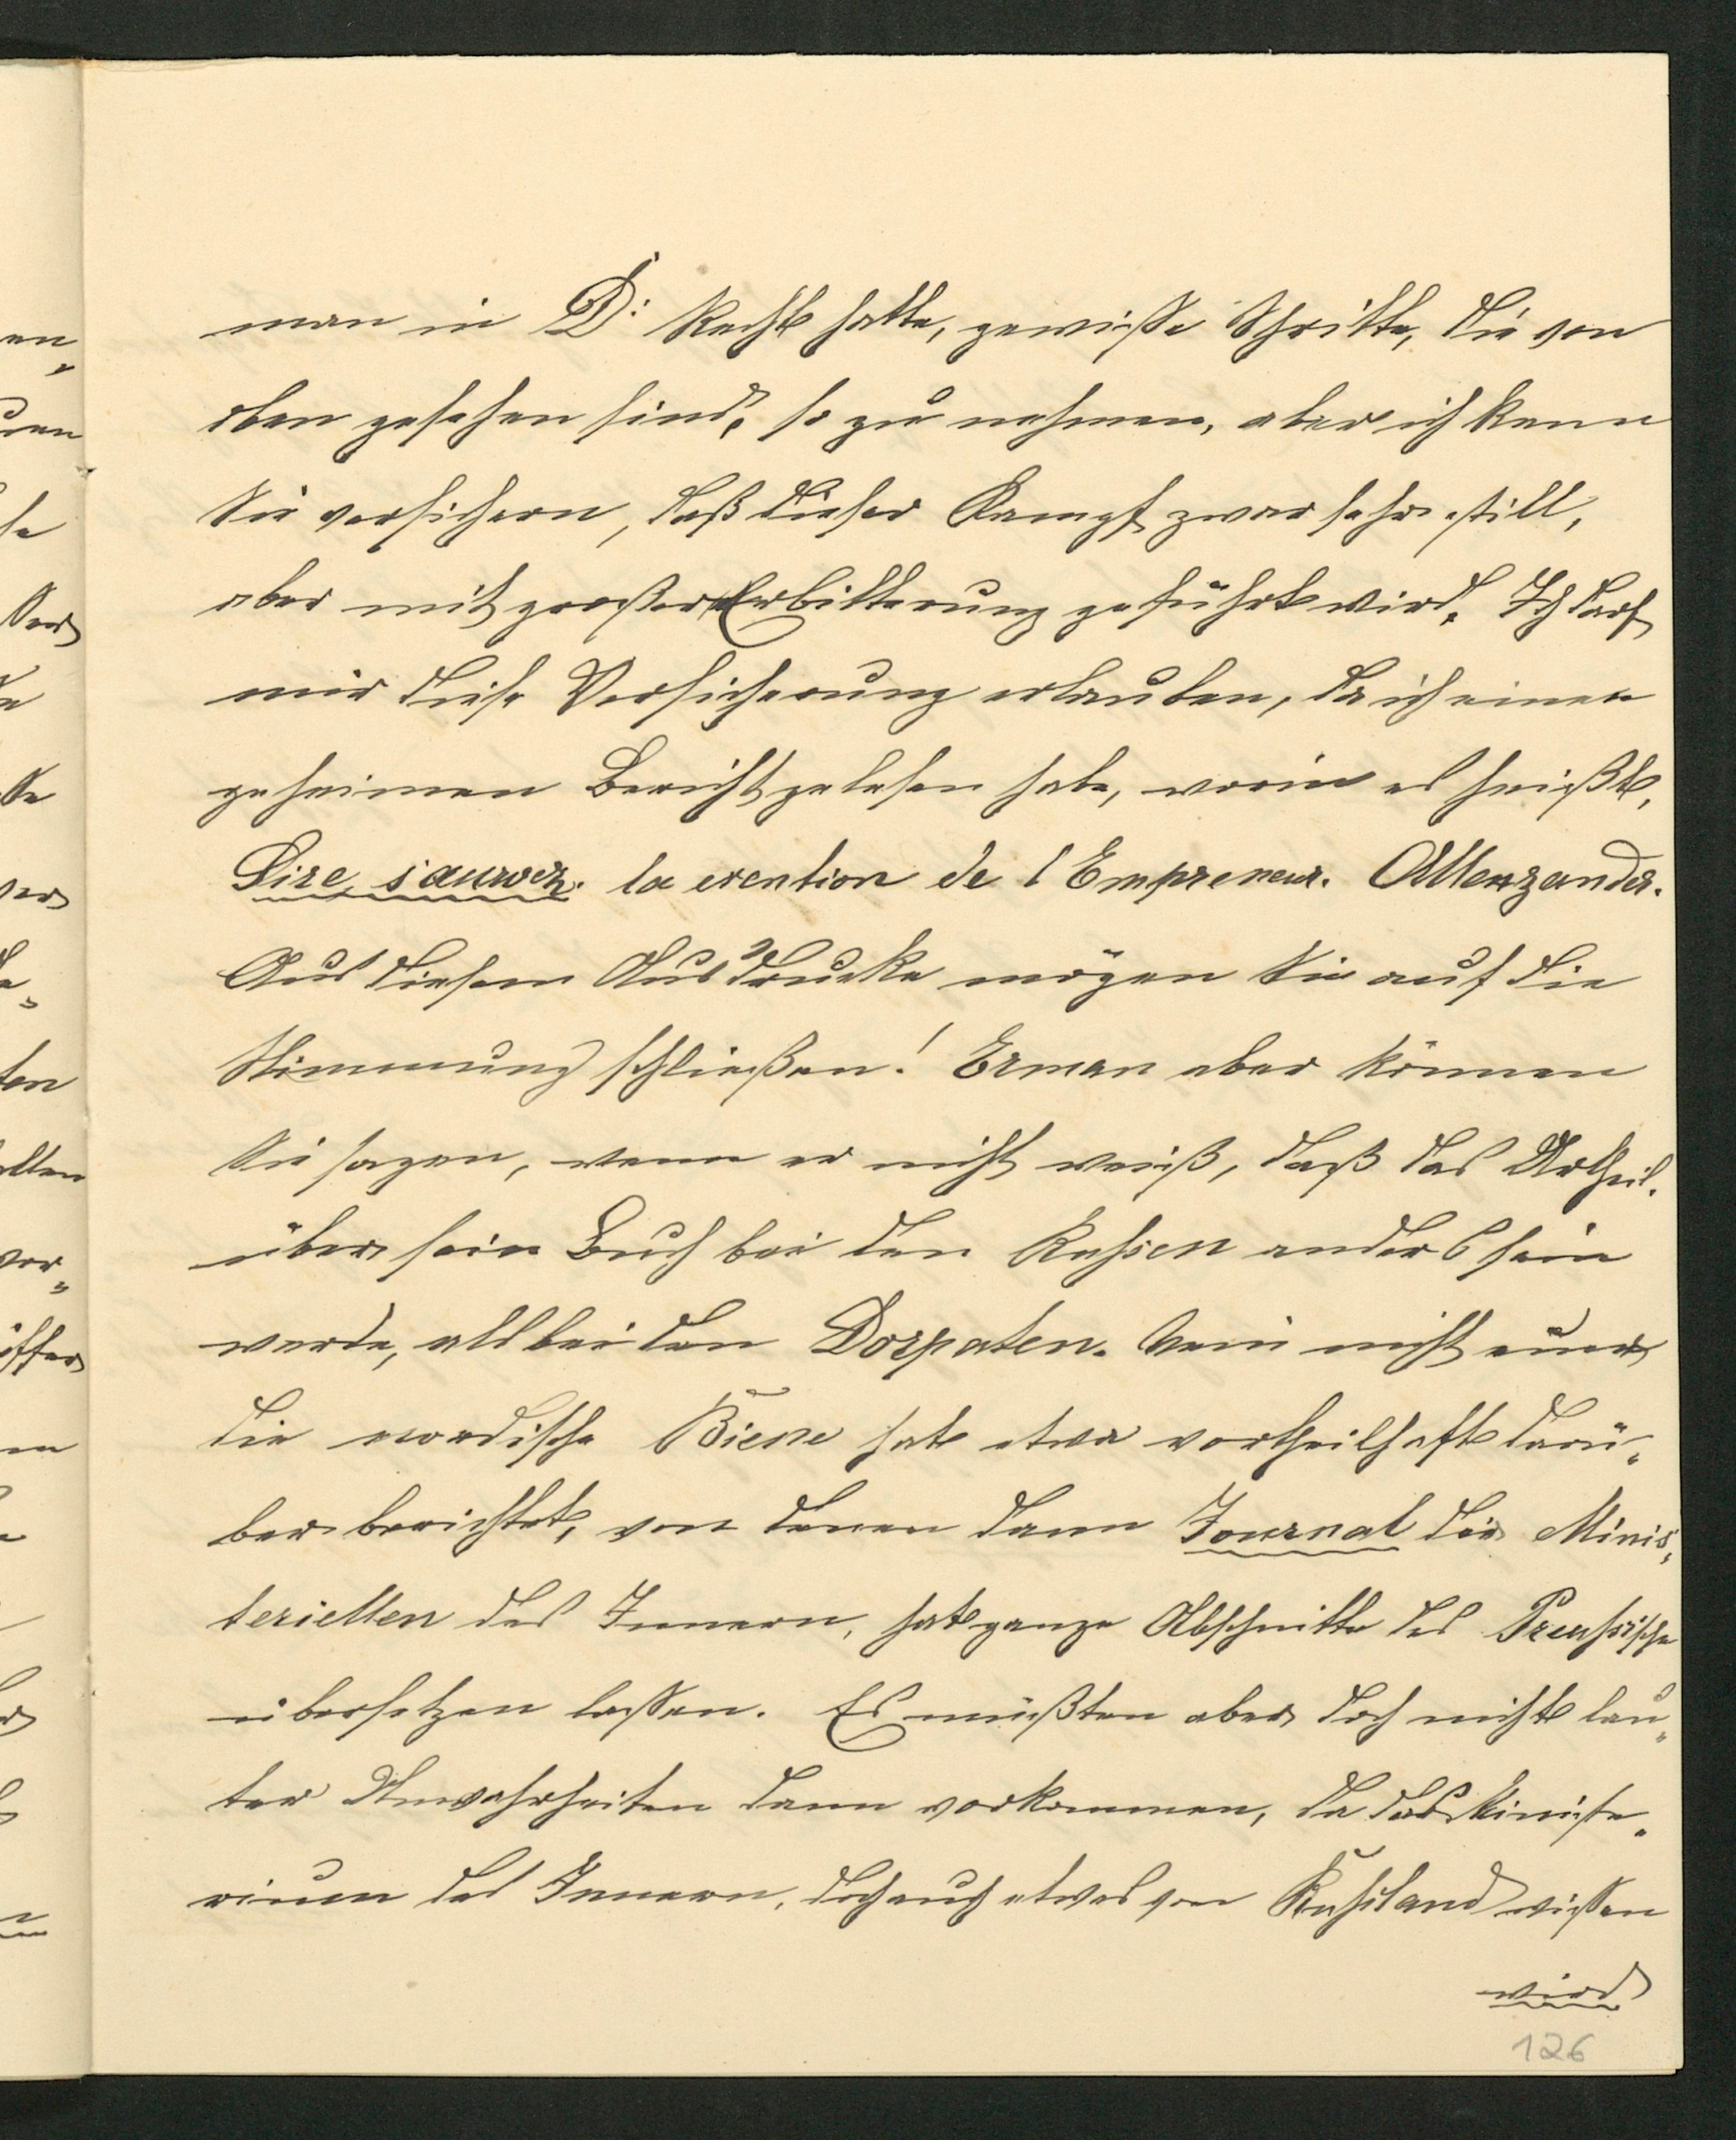 man in D: Recht hatte, gewisse Schritte, die von
oben geschehen sind, so zu nehmen, aber ich kann
Sie versichern, daß dieser Kampf zwar sehr still,
aber mit großer Erbitterung geführt wird. Ich darf
mir diese Versicherung erlauben, da ich einen
geheimen Bericht gelesen habe, worin es heißt,
Sire, sauvez. la exention de l'Empreneur. Allexzander.
Aus diesem Ausdrucke mögen Sie auf die
Stimmung schließen! Erman aber können
Sie sagen, wenn er nicht weiß, daß das Urtheil.
über sein Buch bei den Russen anders sein
werde, als bei den Dorpaten. Nein nicht nur
die nordische Biene hat etwa vortheilhaft darü„
ber berichtet, von denen dann Journal die Minis„
teriellen des Innern, hat ganze Abschnitte des Preussische
übersetzen lassen. Es müßten aber doch nicht lau„
ter Unwahrheiten dann vorkommen, da das Ministe„
rium des Innern, doch auch etwas von Russland wissen
wird
126